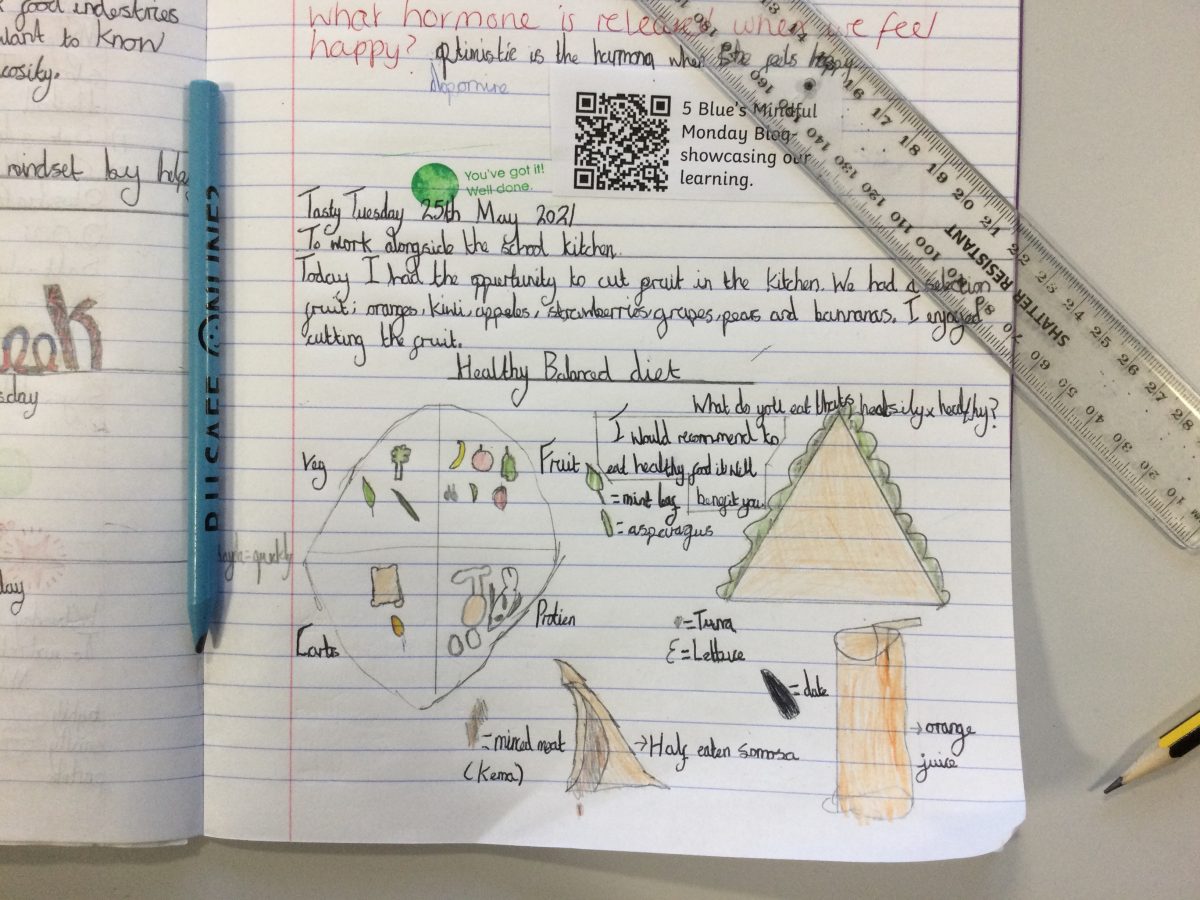 good industries
want to know
cosity.
mindset by help
eek
sday
day
What hormone is released when we feel
happy? optimistic is the harmona when she feels happy
dopomine
5 Blue's Mindful
Monday Blog-
showcasing our
learning.
You've got it!
Well done.
Tasty Tuesday 25th May 2021
To work alongside the school kitchen.
Today I had the oppurtunity to cut fruit in the kitchen. We had a selection
fruit; oranges, kiwi, appeles, strawberries, grapes, pears and bannanas. I enjoyed
cutting the fruit.
Healthy Balanced diet
What do you eat thats healthy?
Veg
Fruit
I would recommend to
eat healthy food it will
benefit you.
= mint leaf
= asparagus
Carbs
Protien
= Tuna
= Lettuce
= date
= minced meat
(Kema)
→ Half eaten somosa
→ orange
juice
B U SAFE @ ONLINE?
SHATTER RESISTANT
13 14 15 16 17 18 19 20 21 22 23 24 25 26 27 28
180 170 160 150 140 130 120 110 100 90 80 70 60 50 40 30 20 10